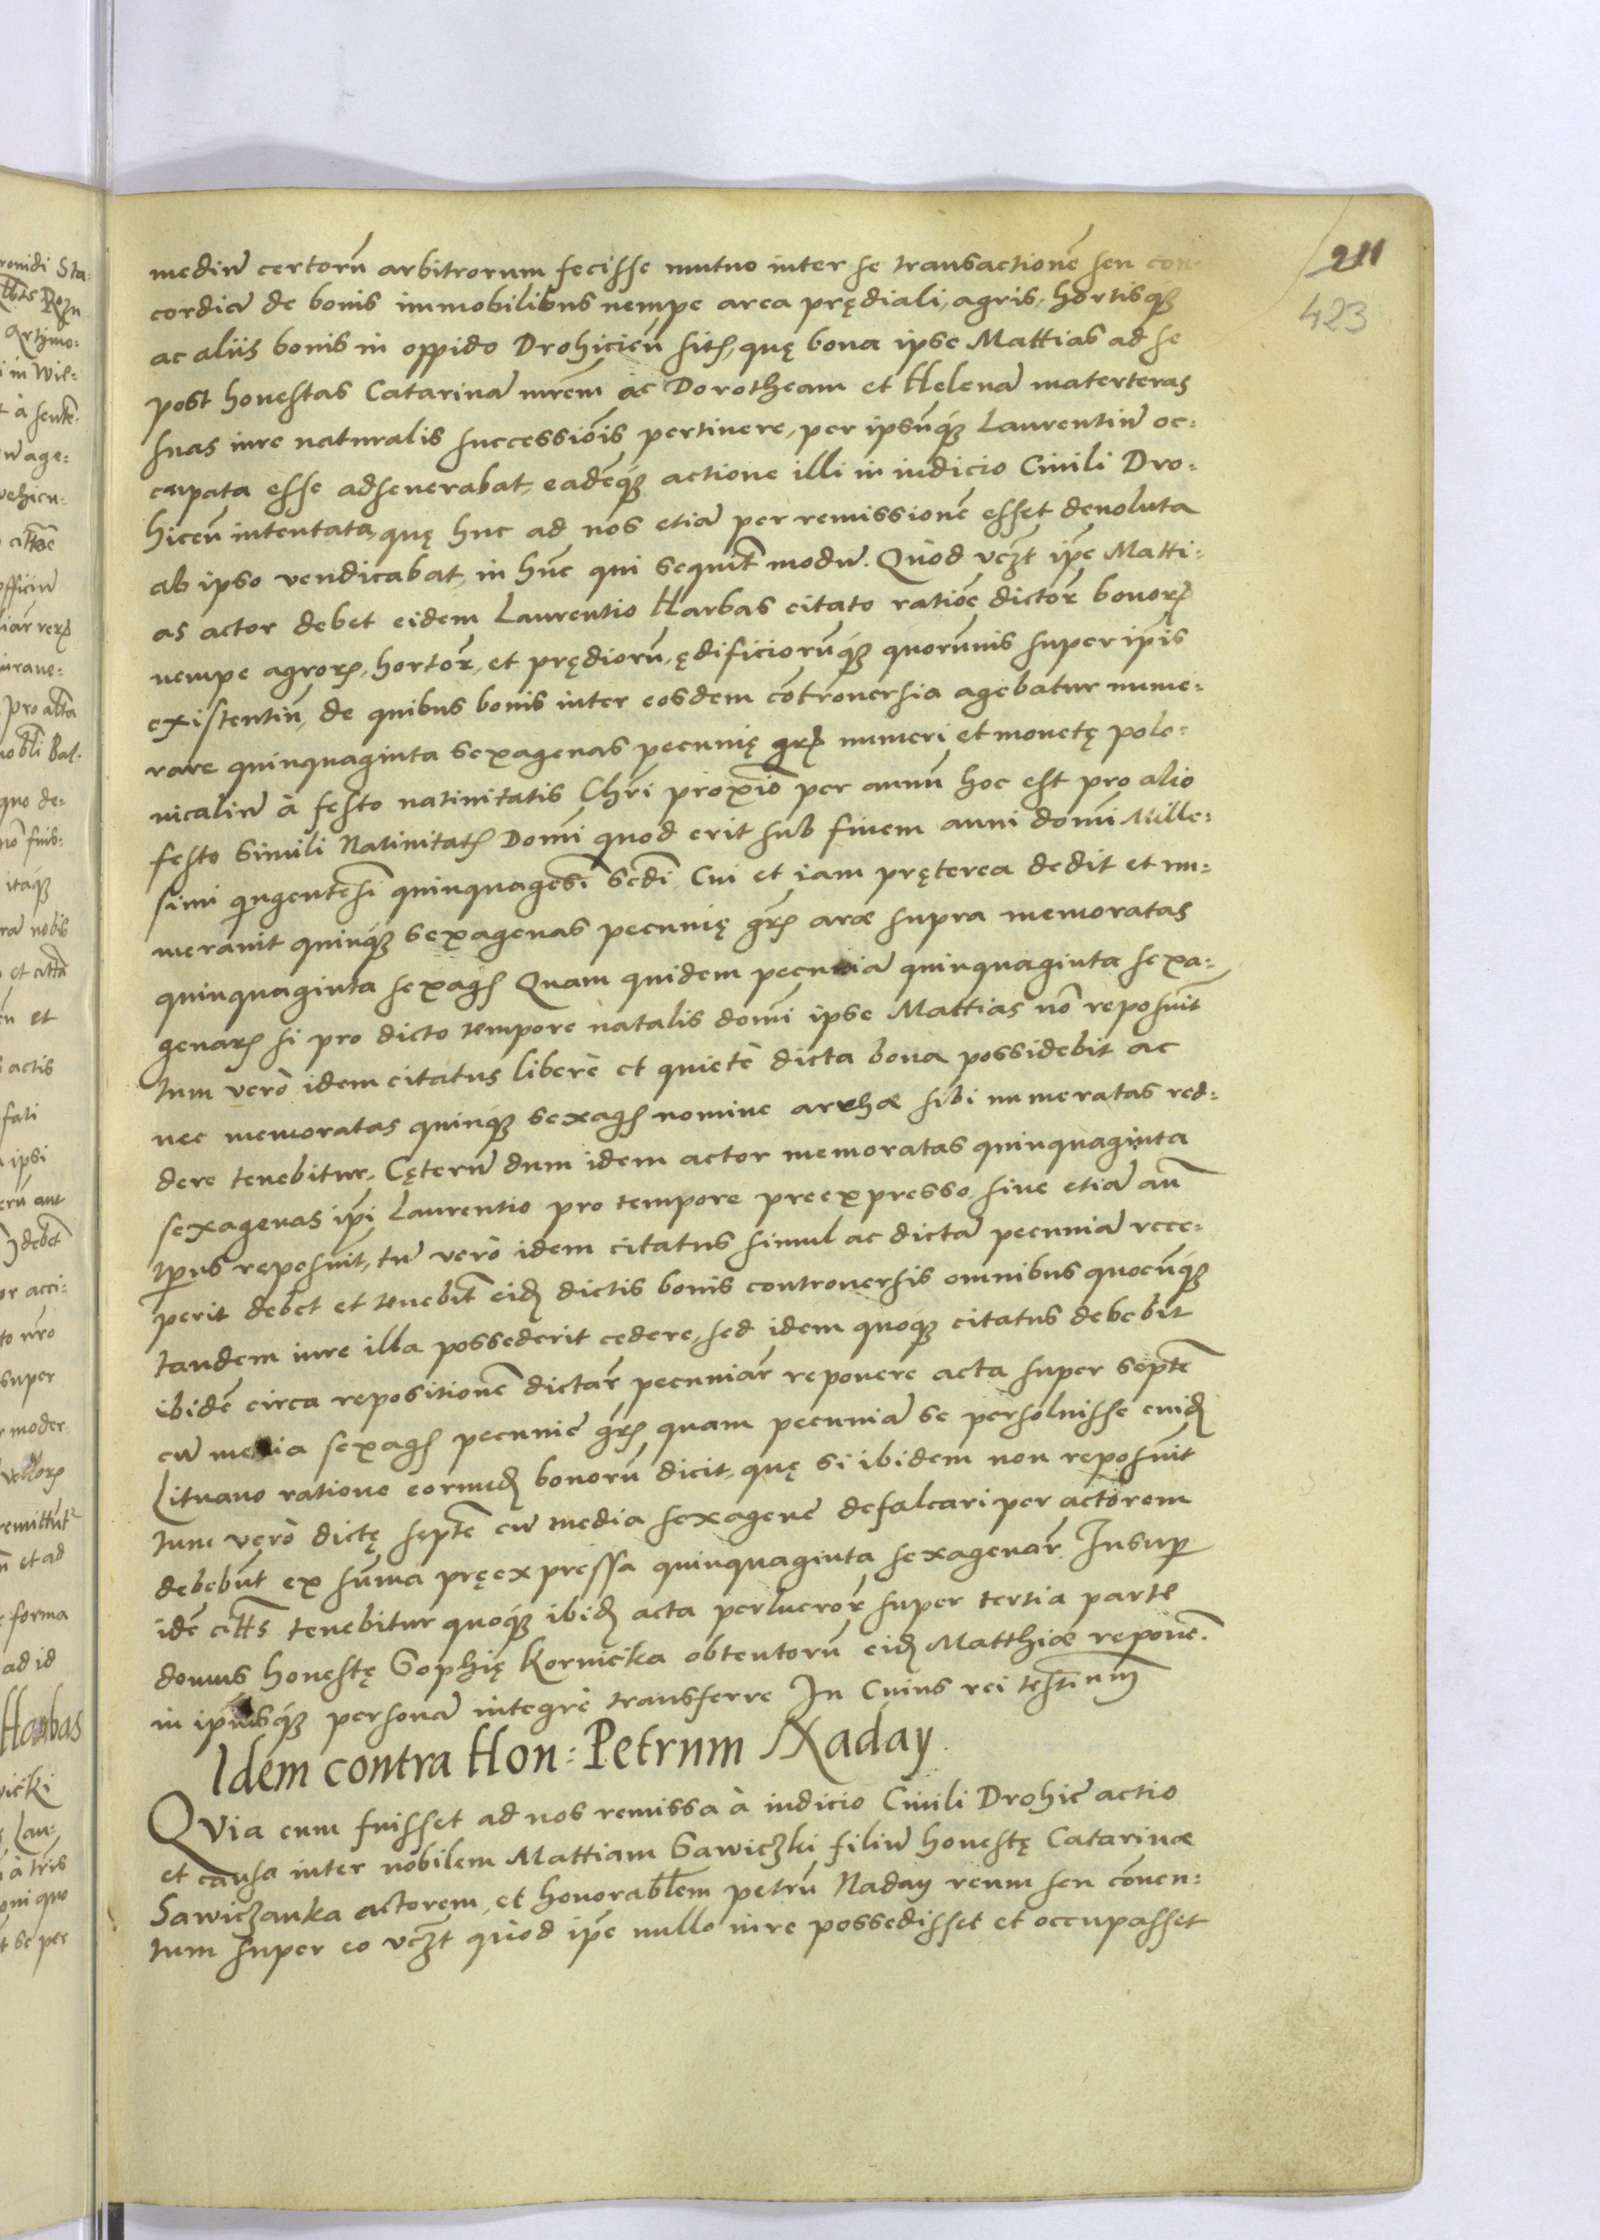 211
423
mediũ certorũ arbitrorum fecisse mutuo inter se transactionẽ seu con-
cordiã de bonis immobilibus nempe area prędiali, agris, hortisqꝫ
ac aliis bonis in oppido Drohicień sitꝭ, quę bona ipse Mattias ad se
post honestas Catarinã mrẽm ac Dorotheam et Helenã materteras
suas iure naturalis successiõis pertinere, per ipsũqꝫ Laurentiũ oc-
cupata esse adseuerabat, eadẽqꝫ actione illi in iudicio Ciuili Dro-
hiceń intentata, quę huc ad nos etiã per remissionẽ esset deuoluta
ab ipso vendicabat, in hũc qui sequit̃ modũ. Quòd vcꝫt ip̃e Matti-
as actor debet eidem Laurentio Harbas citato ratiõe dictor̃ bonorꝭ
nempe agrorꝭ, hortor̃, et prędiorũ, ędificiorũqꝫ quorũuis super ip̃is
existentiũ, de quibus bonis inter eosdem cõtrouersia agebatur nume-
rare quinquaginta sexagenas pecunię grꝭ numeri et monetę polo-
nicaliũ à festo natiuitatis Chr̃i proximõ per annũ hoc est pro alio
festo simili Natiuitatꝭ Domĩ quod erit sub finem anni domĩ Mille-
simi q̃ngentesĩ quinquagesĩ scđi. Cui et iam pręterea dedit et nu-
merauit quinqꝫ sexagenas pecunię grꝭ aræ supra memoratas
quinquaginta sexagꝭ Quam quidem pecuniã quinquaginta sexa-
genarꝭ si pro dicto tempore natalis domĩ ipse Mattias nõ reposuit̃
tum verò idem citatus liberè et quietè dicta bona possidebit ac
nec memoratas quinqꝫ sexagꝭ nomine arrhæ sibi numeratas red-
dere tenebitur. Cęterũ dum idem actor memoratas quinquaginta
sexagenas ip̃i Laurentio pro tempore preexpresso, siue etiã añ
tp̃us reposuit, tũ verò idem citatus simul ac dictã pecuniã rece-
perit debet et tenebit̃ eidꝭ dictis bonis controuersis omnibus quocũqꝫ
tandem iure illa possederit cedere, sed idem quoqꝫ citatus debebit
ibidẽ circa repositionẽ dictar̃ pecuniar̃ reponere acta super septẽ
cũ media sexagꝭ pecunie grꝭ quam pecuniã se persoluisse cuidꝭ
Lituano ratione eorundꝭ bonorũ dicit, quę si ibidem non reposuit
tum verò dictę septẽ cũ media sexagene defalcari per actorem
debebũt ex sũma pręexpressa quinquaginta sexagenar̃. Insup
idẽ citt̃s tenebitur quoqꝫ ibidꝭ acta perlucror̃ super tertia parte
domus honestę Sophię Kornicka obtentorũ eidꝭ Matthiæ reponẽ.
in ip̃iusqꝫ personã integrè transferre In Cuius rei testiũm
Idem contra Hon: Petrum Naday.
QVia cum fuisset ad nos remissa à iudicio Ciuili Drohic̃ actio
et causa inter nobilem Mattiam Sawiczki filiũ honestę Catarinæ
Sawiczanka actorem, et honorabl̃em petrũ Naday reum seu cõuen-
tum super eo vcꝫt quòd ip̃e nullo iure possedisset et occupasset